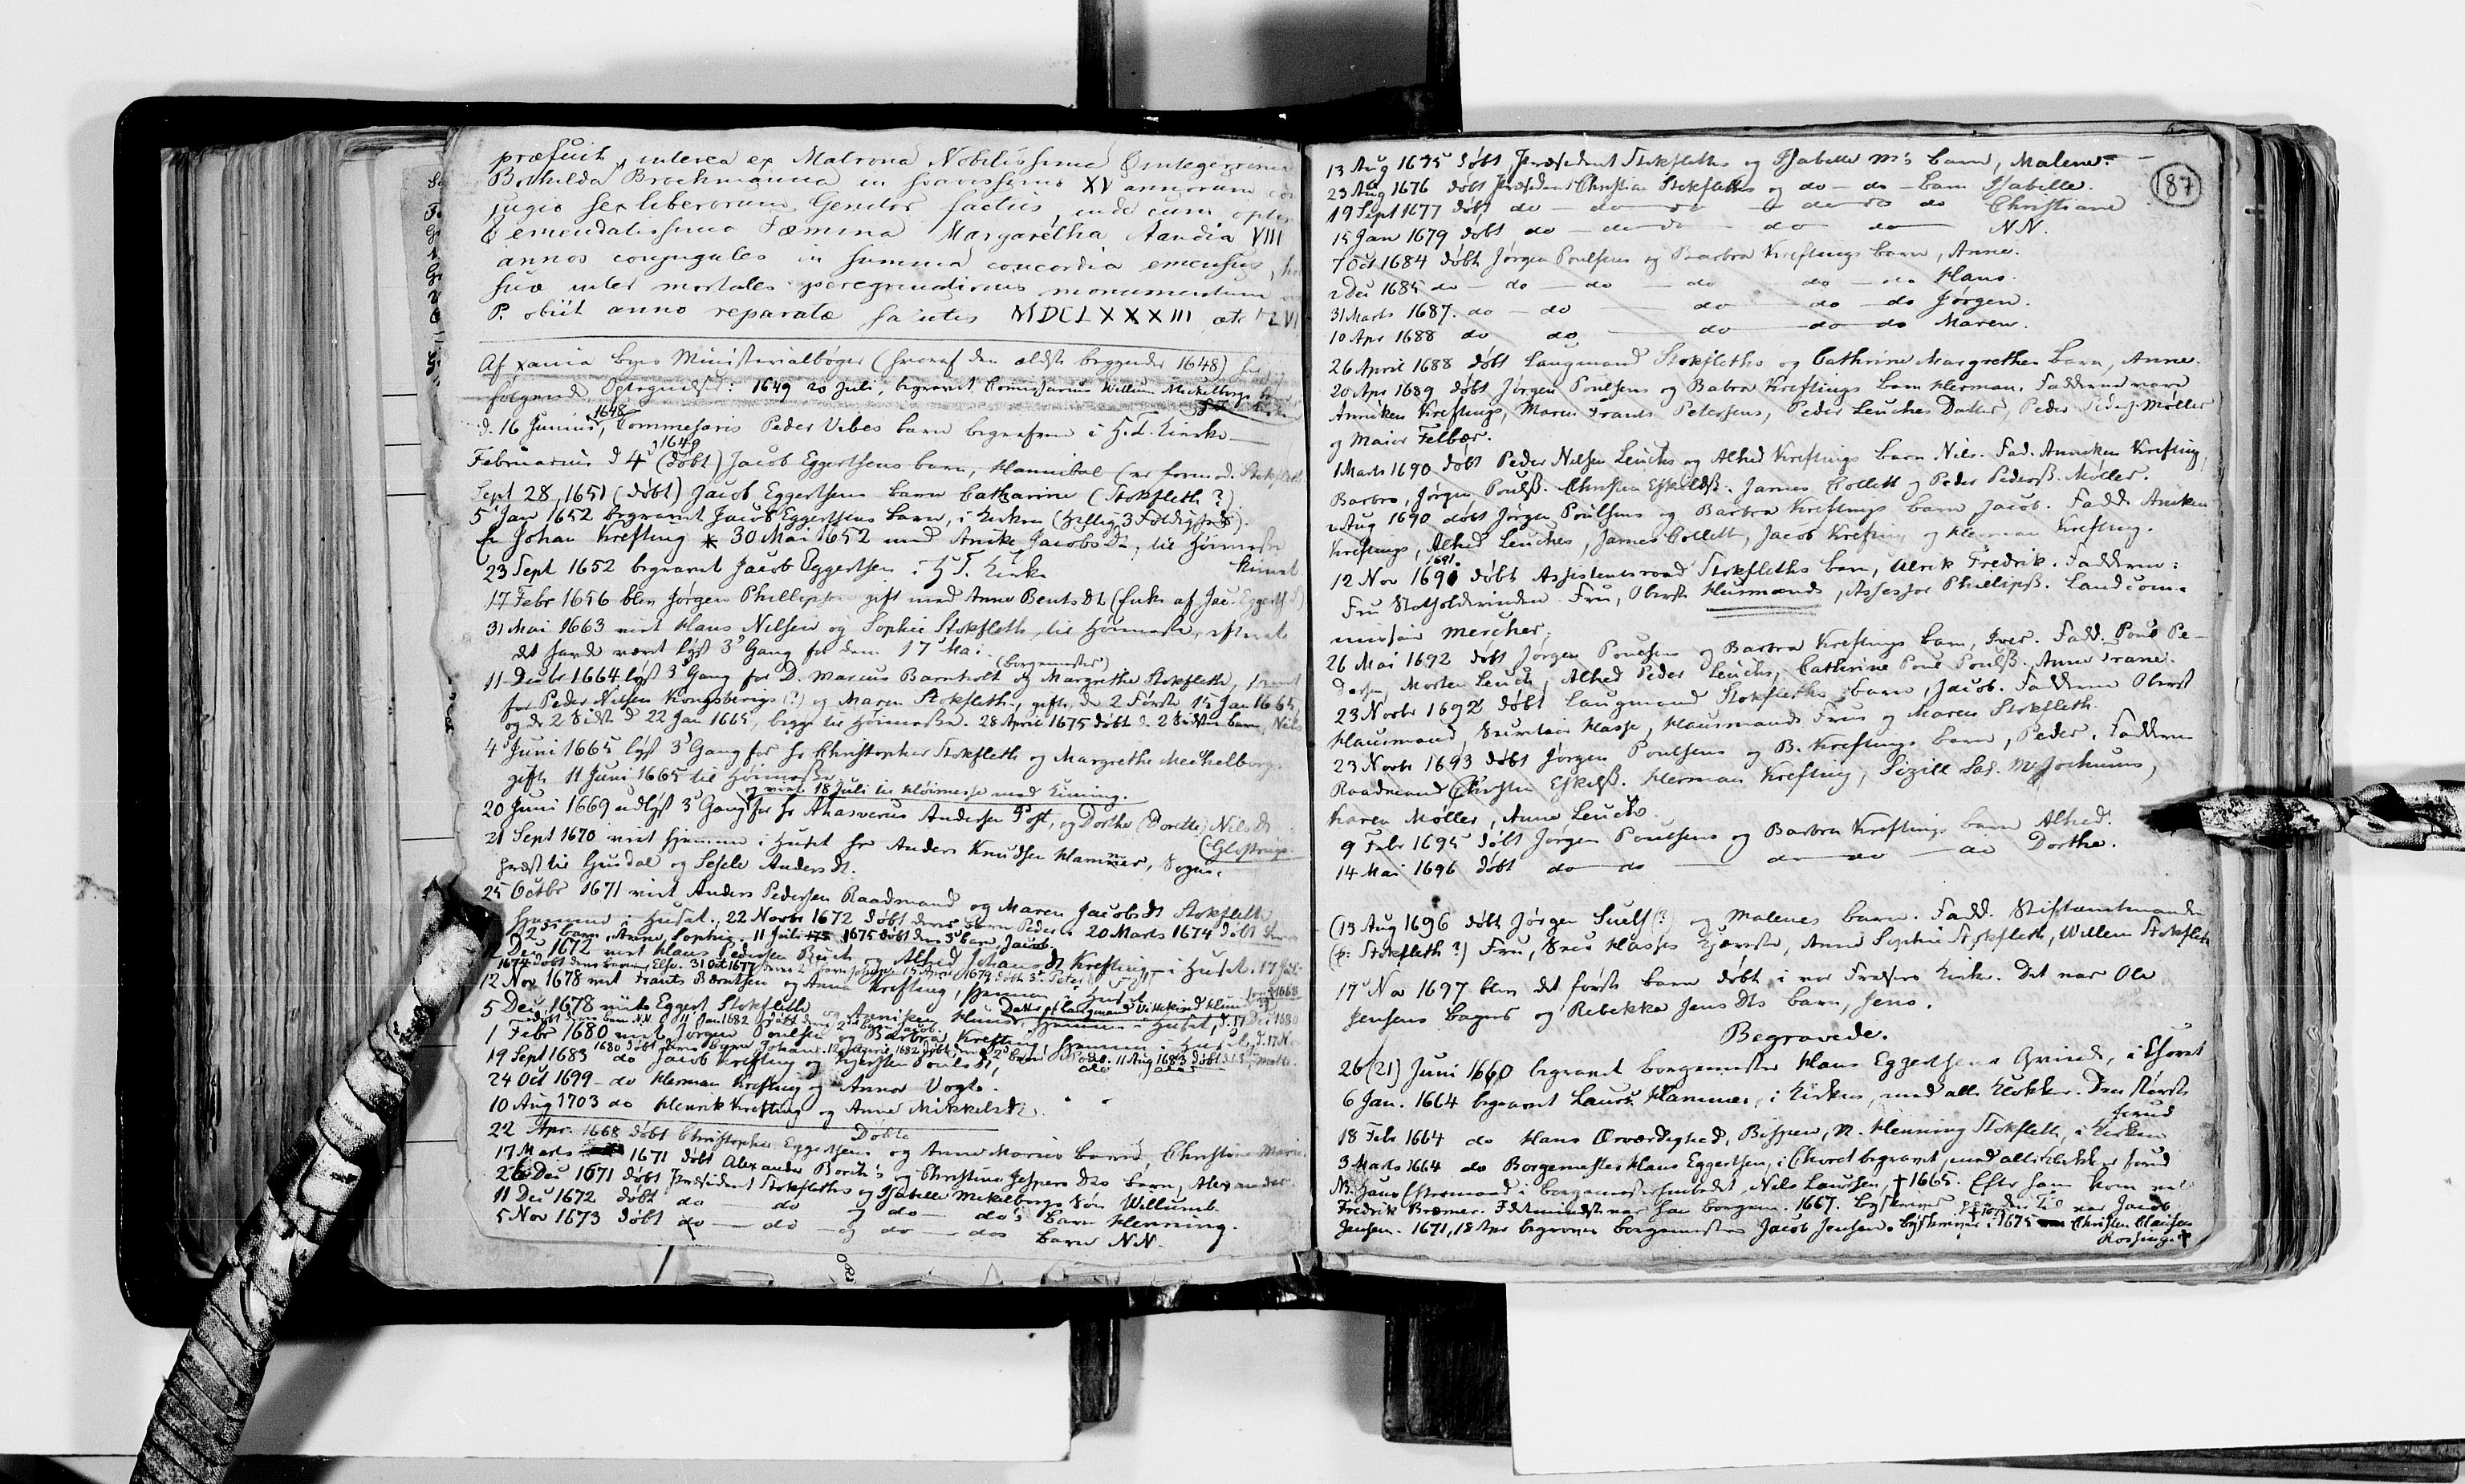 præfuit, interea ex Matrona Nobilissima & integerrima
Bothilda Brochmanna in suavissimo XV annorum con
jugio sex liberorum Genitor factus, inde cum opte
& emendatissima Fæmina Margaretha Aandia VIII
annos conjugales in summa concordia emensus,
suæ inter mortales peregrinationis monumentum
P. obiit anno reparatæ salutis MDCLXXXIII æt LVI
Af Xania Byes Ministerialbøger (hvoraf den ældste begynder 1648)
følgende Optegnelser: 1649 20 Juli, begravet Commissarius Willum Mechelborgs
d. 16 Junius, 1648 Commesaris Peder Vibes barn begrafven i H. T. Kircke
Februarius d 4 1649 (døbt) Jacob Eggertsens barn, Hannibal (er formod. Stokfleth
Sept 28, 1651 (døbt) Jacob Eggertsens barn Catharine (Stokfleth?)
5 Jan 1652 begravet Jacob Eggertsens barn, i Kirken (hellig 3 Foldighed).
Johan Krefting * 30 Mai 1652 med Anike Jacobs Dr, til Høimesse
23 Sept 1652 begravet Jacob Eggertsen i H T. Kirke
17 Febr 1656 blev Jørgen Phillipsen gift med Anne Bents Dt (Enke af Jac. Eggerts.)
31 Mai 1663 viet Hans Nilsen og Sophie Stokfleth, til Høimesse, efterat
det havde været lyst 3 Gang for dem 17 Mai
11 Decbr 1664 lyst 3 Gang for D. Marcus Barnholt (borgemester) og Margrethe Stokfleth,
for Peder Nilsen Kongsbergs (?) og Maren Stokfleth, gifte, de 2 Første 15 Jan 1665,
og de 2 Sidste d 22 Jan 1665, begge til Høimesse. 28 April 1675 døbt d. 2 Sidstes barn, Nils
4 Juni 1665 lyst 3 Gang for Hr Christopher Stokfleth og Margrethe Mechelborg
gifte 11 Juni 1665 til Høimesse
og viet 18 Juli til Høimesse med
20 Juni 1669 udlyst 3 Gang for Hr Ahasverus Andersen Post, og Dorthe (Dorette) Nils Dt
(Glostrup.
21 Sept 1670 viet hjemme i Huset Hr Anders Knudsen Hammer, Sogne-
præst til Gusdal og Sesele Anders Dt.
25 Octbr 1671 viet Anders Pedersen Raadmand og Maren Jacobs Dt Stokfleth
hjemme i Huset., 22 Novbr 1672 døbt deres barn Peder. 20 Marts 1674 døbt deres
2det barn, Anne Sophie. 11 Juli 1675 døbt deres 3d barn Jacob
Dec 1672 viet Claus Pedersen og Alhed Johans Dt Krefting i Huset. 17 Juli
1674 døbt deres barn, Else. 31 Oct 1677
12 Nov 1678 viet Frants Berntsen og Anna Krefting, hjemme i Huset
5 Dec 1678 viet Eggert Stokfleth og Anniken hjemme i Huset, d. 17 Dec 1680
Datter af Laugmand
1 Febr 1680 viet Jørgen Poulsen og Barbra Krefting hjemme i Huset, d. 17 Nov
1680 døbt deres barn Johan. 1682 døbt deres 2d barn, Povel. 11 Aug 1683 døbt
19 Sept 1683 do Jacob Krefting og Kjersten Pouls Dt, do
24 Oct 1699 – do Herman Krefting og Anna Vogt.
10 Aug 1703 do Henrik Krefting og Anne Mikkels Dt.
Døbte
22 Apr. 1668 døbt Christopher Eggertsens og Anne Maries barn, Christine Marie
17 Marts 1671 døbt Alexander Borch's og Christine Jespers Dts barn, Alexander.
26 Dec 1671 døbt Præsident Stokfleths og Isabelle Mekelborgs Søn Willum
11 Dec 1672 døbt do do og do do's barn Henning.
5 Nov 1673 døbt do – do – og do – dos barn NN.
187
13 Aug 1675 døbt Præsident Stokfleths og Isabelle M's barn, Malene.
23 Aug 1676 døbt Præsident Christian Stokfleths og do – do – barn Isabelle.
19 Sept 1677 døbt do – do – do – do do do Christiane
15 Jan 1679 døbt do – do do – do do NN.
7 Oct 1684 døbt Jørgen Poulsens og Barbra Kreftings barn, Anne.
2 Dec 1685 do – do – do – do do – do Hans.
31 Marts 1687. do – do – do – do – do Jørgen.
10 Apr 1688 do do – do do do Maren.
26 April 1688 døbt Laugmand Stokfleths og Cathrine Margrethes barn, Anne.
20 Apr 1689 døbt Jørgen Poulsens og Babra Kreftings barn Herman. Fadderne vare
Anniken Kreftings, Maren Frants Petersens, Peder Leuches Datter, Peder Peders. Møller
og Maior Felber.
1 Marts 1690 døbt Peder Nilsen Leuchs og Alhed Kreftings barn Nils. Fad. Anniken Krefting,
Barbra, Jørgen Poulsß. Christen Eskildß. James Collett og Peder Pedersß. Møller.
2 Aug 1690 døbt Jørgen Poulsens og Barbra Kreftings barn Jacob. Fadd. Aniken
Kreftings, Alhed Leuches, James Collett, Jacob Krefting og Herman Krefting.
12 Nov 1691 døbt Assistentsraad Stokfleths barn, Ulrik Fredrik. Fadderne:
Fru Statholderinden. Fru, Oberst Husmands, Assessor Phillipß. Landcom-
missair Mercher.
26 Mai 1692 døbt Jørgen Poulsens og Barbra Kreftings barn, Iver. Fadd. Poul Pe-
dersen, Morten Leuch, Alhed Peder Leuchs, Cathrine Poul Poulß. Anne Frane.
23 Novbr 1692 døbt Laugmand Stokfleths barn, Jacob. Fadderne Oberst
Hausmand, Secretair Hasse, Hausmands Frue og Maren Stokfleth.
23 Novbr 1693 døbt Jørgen Poulsens og B. Kreftings barn, Peder. Faddere
Raadmand Christen Eskelß. Herman Krefting, Sizill Sal. Mr Jochums,
Karen Møller, Anne Leuchs.
9 Febr 1695 døbt Jørgen Poulsens og Barbra Kreftings barn Alhed.
14 Mai 1696 døbt do do – do do – do Dorthe.
(13 Aug 1696 døbt Jørgen Suels (?) og Malenes barn. Fadd. Stiftamtmanden
(ɔ: Stokfleth?) Fru, Anne Sophie Stokfleth, Willem Stokfleth
17 Nov 1697 blev det første barn døbt i vor Frelsers Kirke. Det var Ole
Jensens Bagers og Rebekka Jens Dts barn, Jens.
Begravede.
26 (21) Juni 1660 begravet borgemester Hans Eggertsens Qvinde, i Choret
6 Jan. 1664 begravet Laurs Hammer, i Kirken, med alle Klokker. Den største
forud
18 Febr 1664 do Hans Ærværdighed, Bispen, M. Henning Stokfleth, i Kirken
3 Marts 1664 do Borgemester Hans Eggertsen, i Choret begravet, med alle Klokker forud
NB. Hans Eftermand i borgemesterembedet, Nils Lauritsen, † 1665. Efter ham kom
Fredrik Bremer. var han borgem. 1667. Byskriver paa den Tid var Jacob
Jensen. 1671, 18 Apr begraven borgemester Jacob Jensen. Byskriver i 1675 Christen Clausen